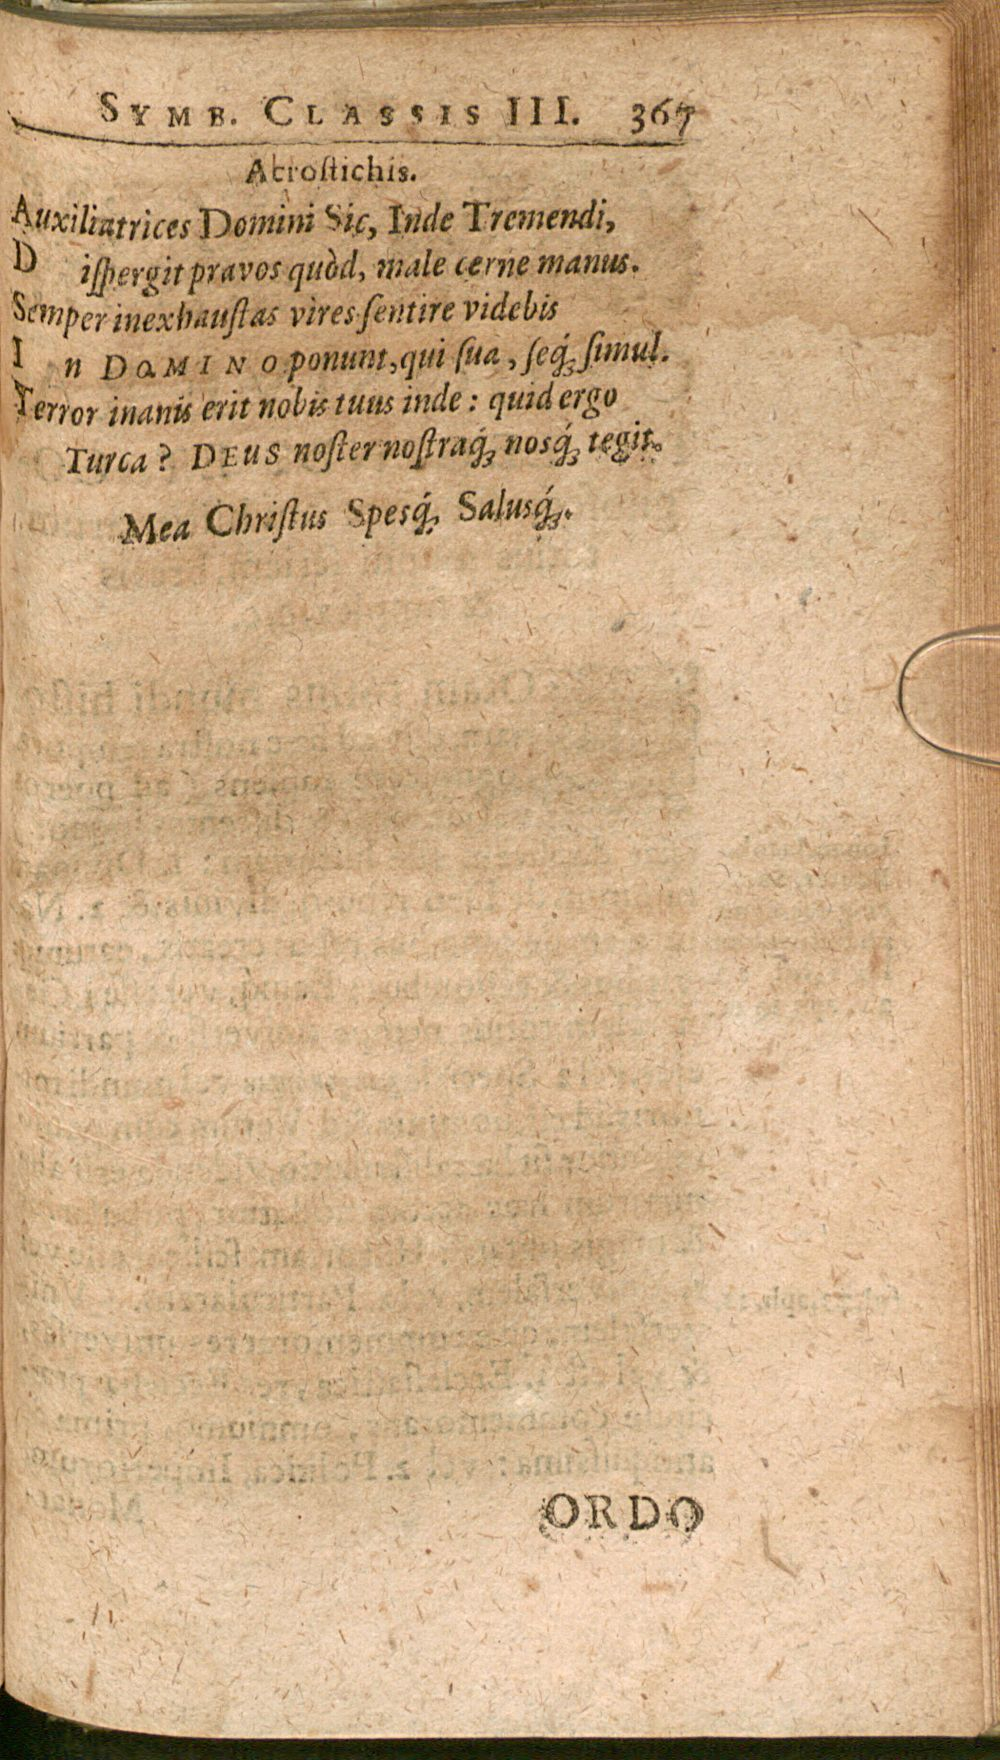 SYMB. CLASSIS III. 367
Acrostichis.
Auxiliatrices Domini Sic, Inde Tremendi,
D iſpergit pravos quòd, male cerne manus.
Semper inexhauſtas vires ſentire videbis
I n DOMINO ponunt, qui ſua, ſeq́; ſimul.
Terror inanis erit nobis tuus inde: quid ergo
Turca? DEUS noſter noſtraq́; nosq́; tegit.
Mea Chriſtus Spesq́; Salusq́;.
ORDO